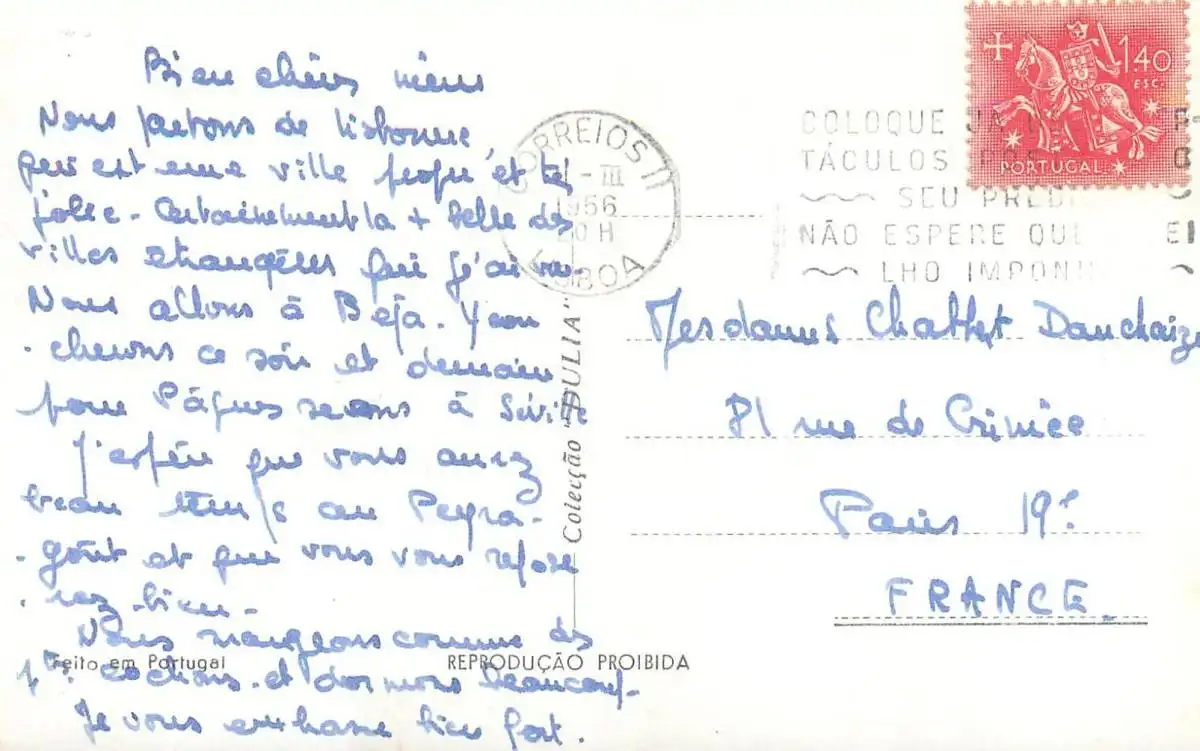 Bien chères
Nous partons de Lisbonne
qui est une ville propre et très
jolie - Certainement la + belle des
villes étrangères que j'ai vue -
Nous allons à Beja. Y cou
- cherons ce soir et demain
pour Pâques serons à Séville
J'espère que vous aurez
beau temps au Peyra -
- goût et que vous vous repose
- rez bien -
Nous mangeons comme des
pts cochons - et dormons beaucoup -
Je vous embrasse bien fort.
Feito em Portugal
REPRODUÇÃO PROIBIDA
Colecção "DULIA"
CORREIOS
- III
1956
20 H
LISBOA
COLOQUE
TÁCULOS
SEU
NÃO ESPERE QUE
LHO
1$40
ESC.
PORTUGAL
Mesdames Chabbert Dauchaize
81 rue de Crimée
Paris 19e
FRANCE